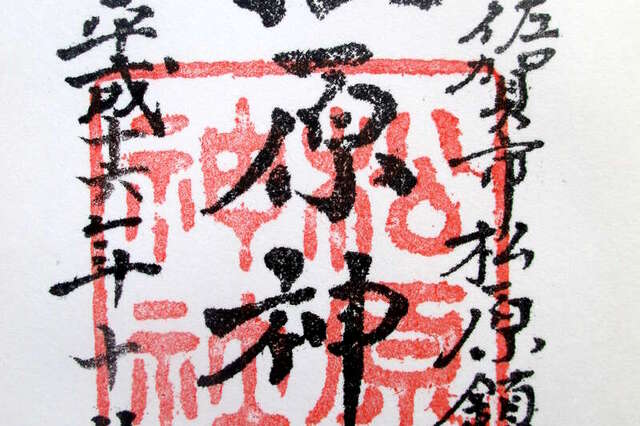 佐賀市松原鎮
原神
平成十六年十
松原
神社